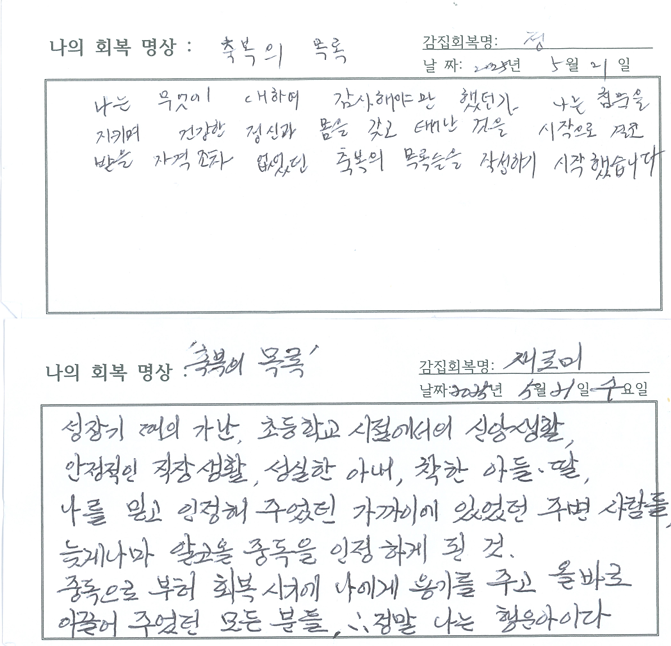 나의 회복 명상 : 축복의 목록
감집회복명: 정
날 짜: 2025년 5월 21일
나는 무엇에 대하여 감사해야만 했던가. 나는 침묵을
지키며 건강한 정신과 몸을 갖고 태난 것을 시작으로 결코
받을 자격조차 없었던 축복의 목록들을 작성하기 시작했습니다
나의 회복 명상 : '축복의 목록'
감집회복명: 새로미
날짜: 2025년 5월 21일 수요일
성장기 때의 가난, 초등학교 시절에서의 신앙생활,
안정적인 직장생활, 성실한 아내, 착한 아들·딸,
나를 믿고 인정해 주었던 가까이에 있었던 주변 사람들,
늦게나마 알코올 중독을 인정하게 된 것.
중독으로 부터 회복 시키에 나에게 용기를 주고 올바로
이끌어 주었던 모든 분들, ∴정말 나는 행운아이다